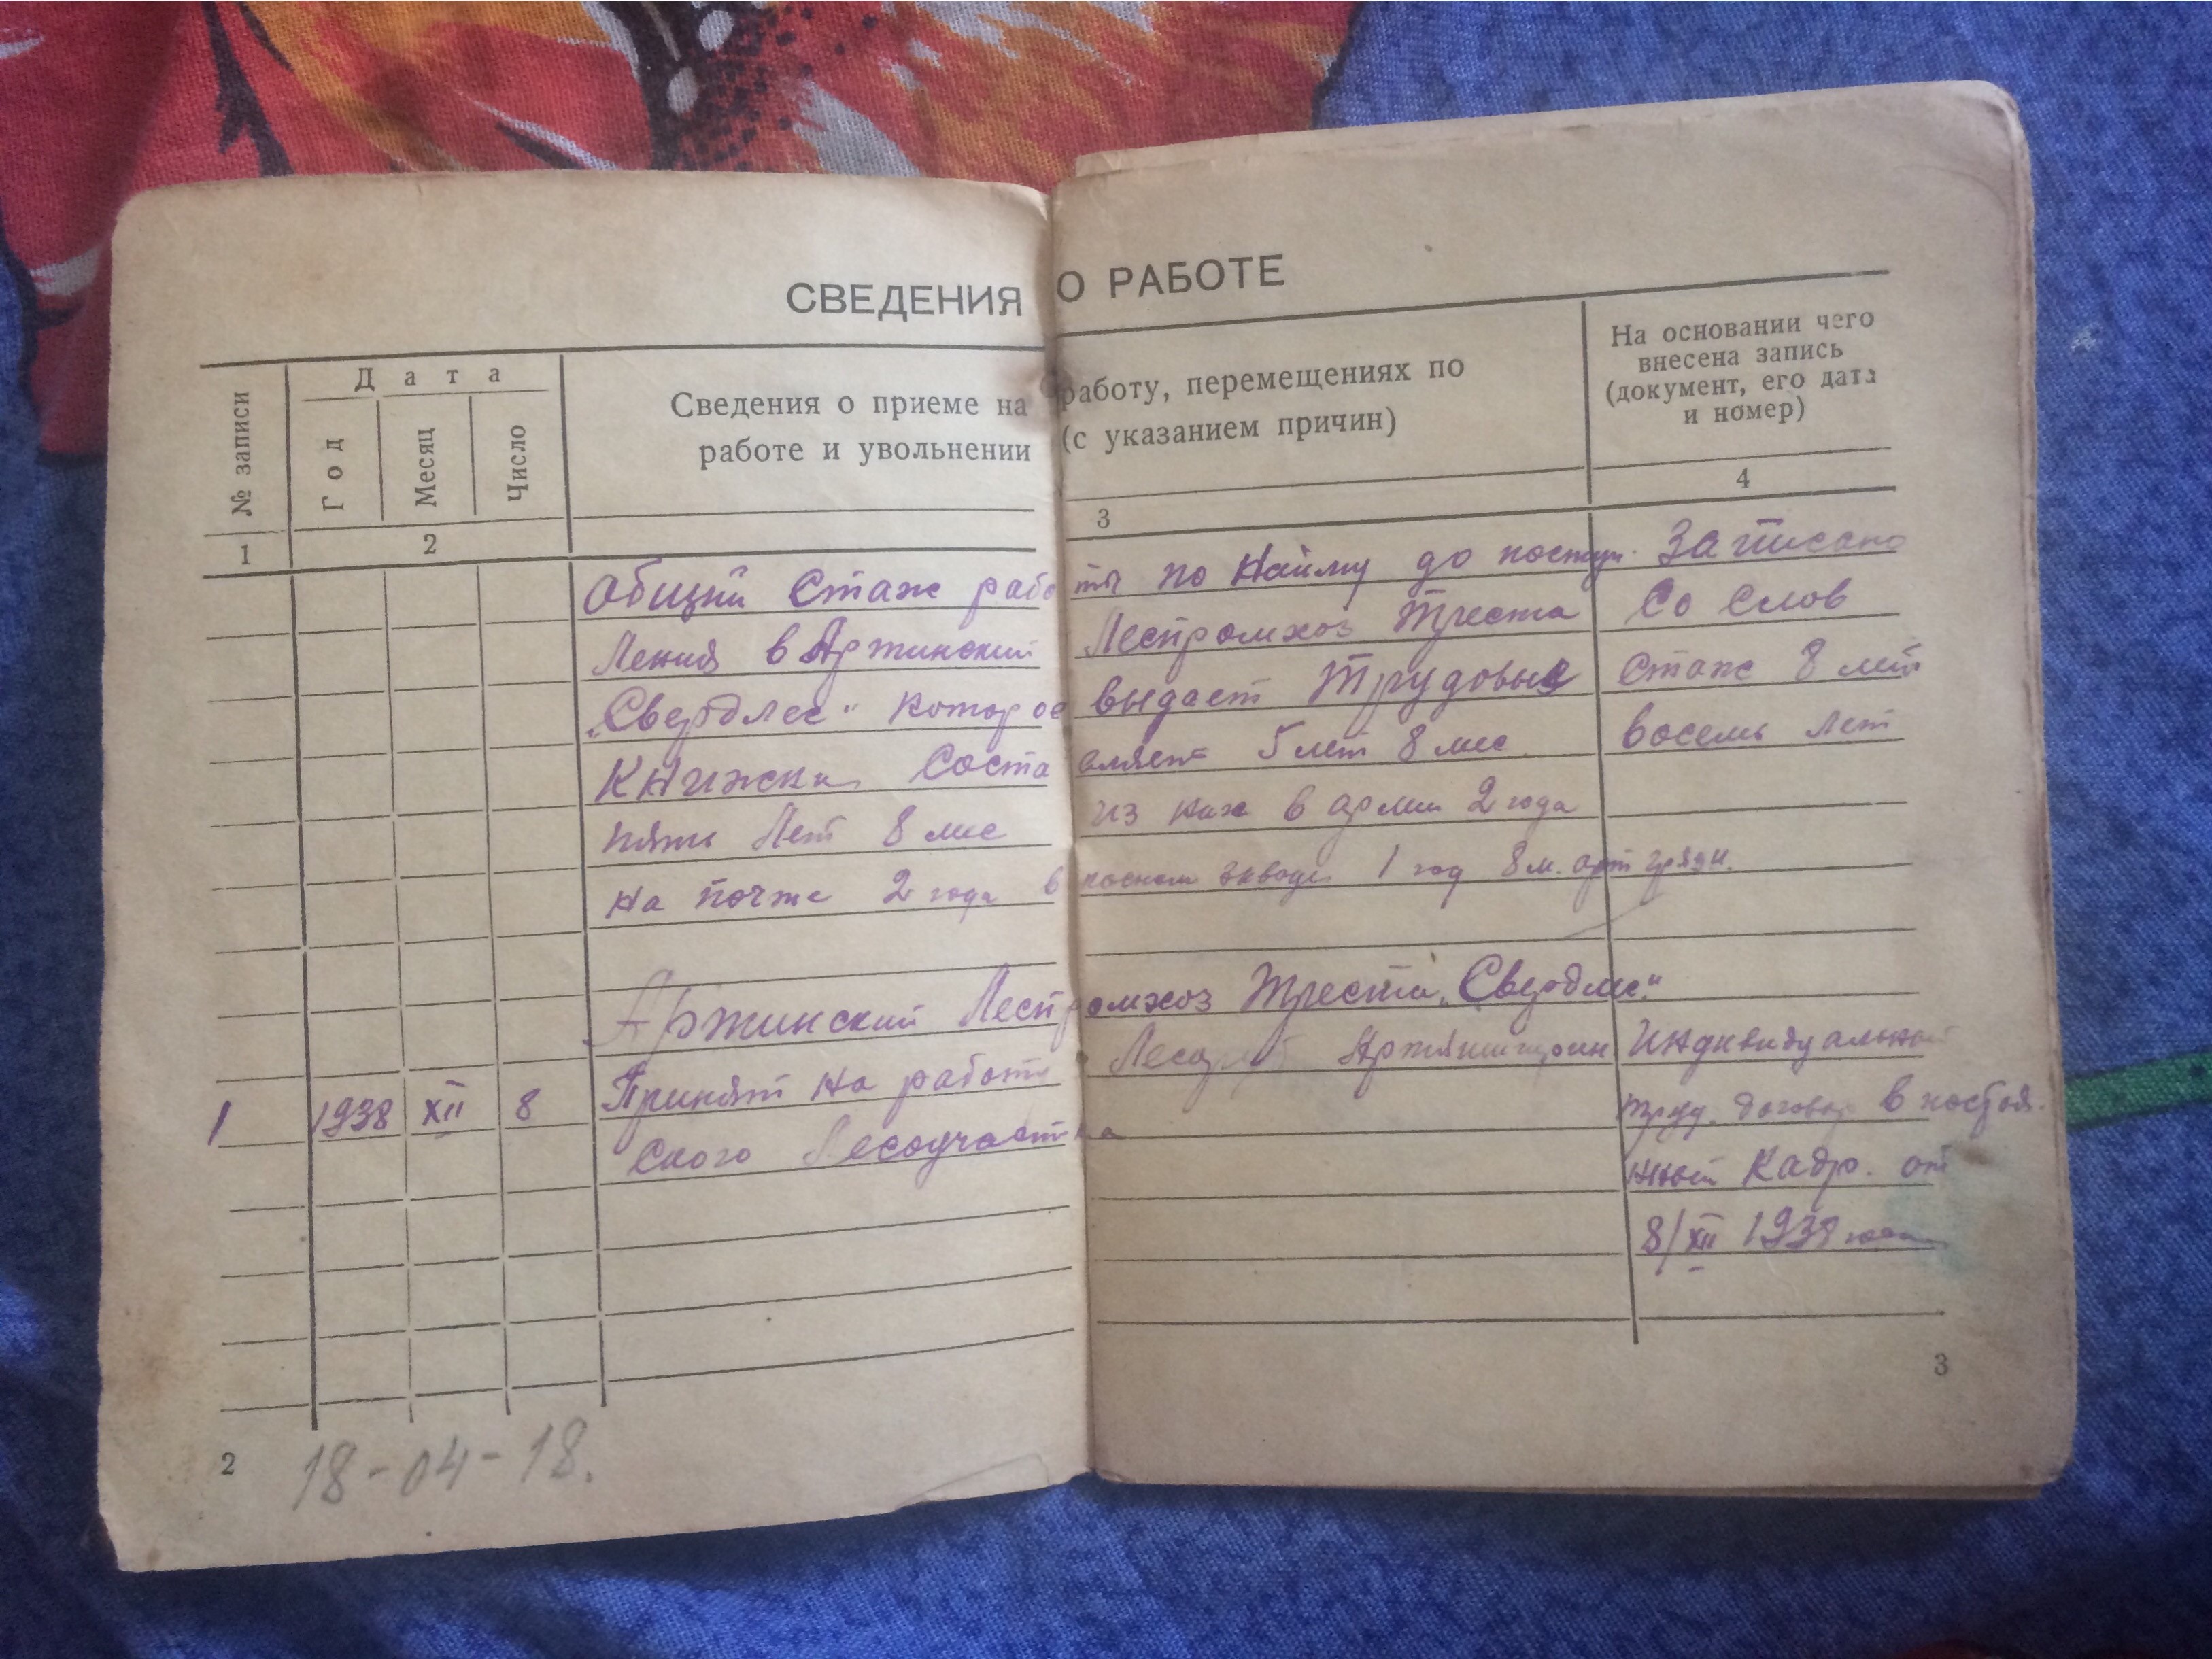 СВЕДЕНИЯ О РАБОТЕ
№ записи
Дата
Год
Месяц
Число
Сведения о приеме на работу, перемещениях по
работе и увольнении (с указанием причин)
На основании чего
внесена запись
(документ, его дата
и номер)
1
2
3
4
Общий стаж работы по найму до поступ. Записано
ления в Аржинский Леспромхоз Треста Со слов
„Свердлес" которое выдает Трудовые Стаж 8 лет
Книжки составляет 5 лет 8 мес. восемь лет
пять лет 8 мес из них в армии 2 года
на почте 2 года в 1 год 8 м.
Аржинский Леспромхоз Треста „Свердлес"
1 1938 XII 8 Принят на работу Лесоруб Индивидуальный
ского Лесоучастка труд. договор в постоя.
ный Кадр. от
8/XII 1938 года
2
18-04-18.
3